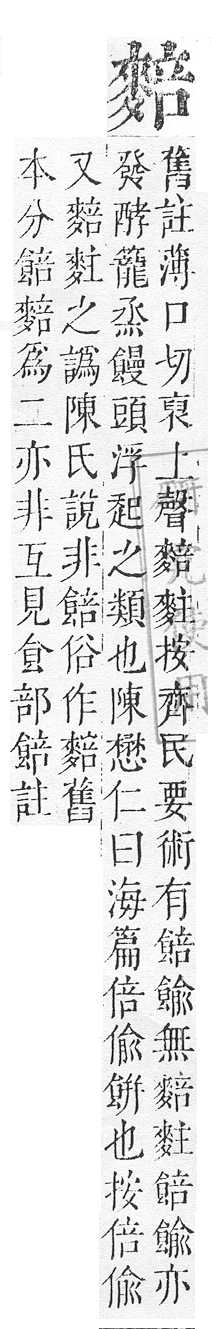 䴺
舊註薄口切裒上聲䴺𪌘按齊民要術有餢䭃無䴺𪌘餢䭃亦
發酵籠烝饅頭浮起之類也陳懋仁曰海篇倍偷餠也按倍偷
又䴺𪌘之譌陳氏說非餢俗作䴺舊
本分餢䴺爲二亦非互見食部餢註